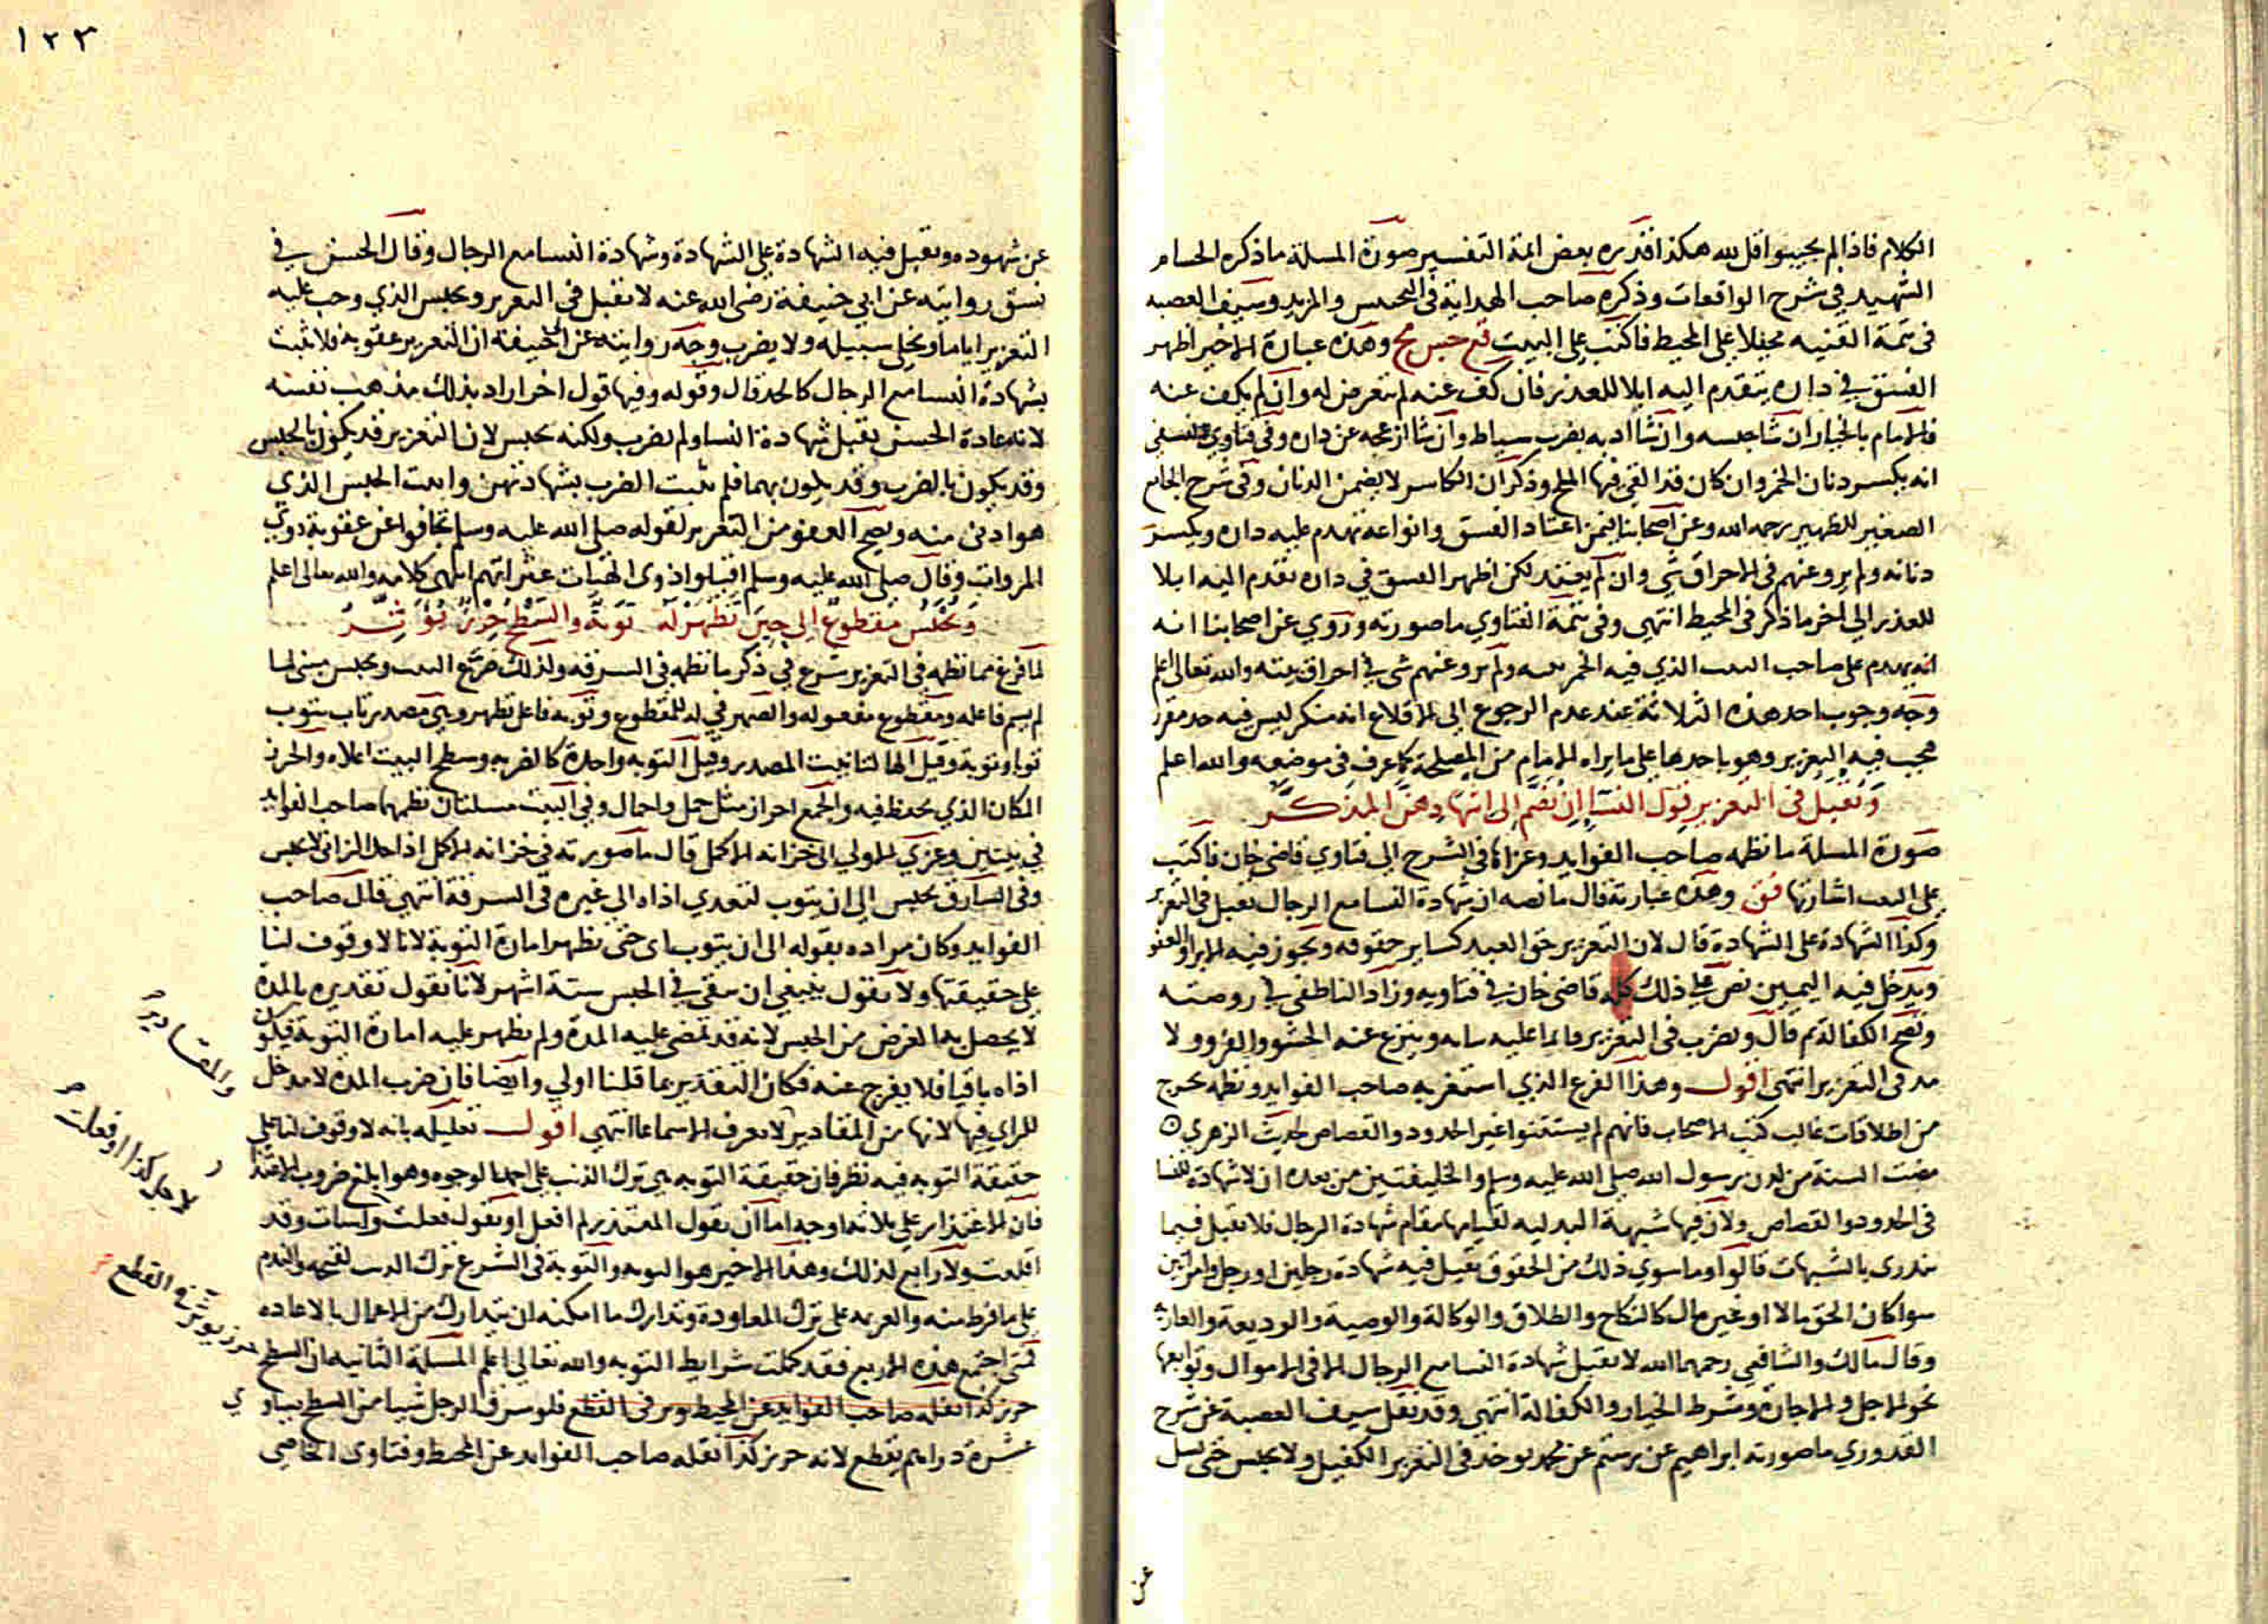 الكلام فاذا لم يجيبوا قل لله هكذا قدره بعض ائمة التفسير صورة المسلة ما ذكره الحسام
الشهيد في شرح الواقعات وذكره صاحب الهداية في التجنيس والمزيد وسيف العصبه
في تتمة القنيه محيلا على المحيط فاكتب على البيت حبس مح وهذه عبارة الاخير اظهر
الفسق في داره يتقدم اليه ابلا للعذر فان كف عنه لم يتعرض له وان لم يكف عنه
فالامام بالخيار ان شا حبسه وان شا ادبه بضرب سياط وان شا ازعجه عن داره وفي فتاوي النسفي
انه يكسر دنان الخمر وان كان قد القي فيها الملح وذكر ان الكاسر لا يضمن الدنان وفي شرح الجامع
الصغير للظهير رحمه الله وعن اصحابنا فيمن اعتاد الفسق وانواعه يهدم عليه داره ويكسر
دنانه ولم يرو عنهم في الاحراق شي وان لم يعتد لكن اظهر الفسق في داره تقدم اليه ابلا
للعذر الي اخر ما ذكر في المحيط انتهي وفي تتمة الفتاوي ما صورته وروي عن اصحابنا انه
انه يهدم على صاحب البيت الذي فيه الخمر بيته ولم يرو عنهم شي في احراق بيته والله تعالى اعلم
وجه وجوب احد هذه الثلاثة عند عدم الرجوع الي الاقلاع انه منكر ليس فيه حد مقرر
فيجب فيه التعزير وهو باحدها على ما يراه الامام من المصلحة كما عرف في موضعه والله اعلم
وتقبل في التعزير قول النسا ان تضم الى اشهادهن المذكر
صورة المسلة ما نظمه صاحب الفوايد وعزاها في الشرح الى فتاوي قاضي خان فاكتب
على البيت اشارتها فق وهذه عبارته قال ما نصه ان شهادة النسا مع الرجال تقبل في التعزير
وكذا الشهادة على الشهادة قال لان التعزير حق العبد كساير حقوقه ويجوز فيه الابرا والعفو
ويدخل فيه اليمين نص على ذلك كله قاضي خان في فتاويه وزاد الناطفي في روضته
وتصح الكفالة ثم قال ويضرب في التعزير قايما عليه ثيابه وينزع عنه الحشو والفرو ولا
يمد في التعزير انتهى اقول وهذا الفرع الذي استغربه صاحب الفوايد ونظمه تخرج
من اطلاقات غالب كتب الاصحاب فانهم لم يستثنوا غير الحدود والقصاص لحديث الزهري
مضت السنة من لدن رسول الله صلى الله عليه وسلم والخليفتين من بعده ان لا شهادة للنسا
في الحدود والقصاص ولان فيها شبهة البدليه لقيامها مقام شهادة الرجال فلا تقبل فيما
يندرى بالشبهات قالوا وما سوي ذلك من الحقوق تقبل فيه شهادة رجلين او رجل وامراتين
سوا كان الحق مالا او غير مال كالنكاح والطلاق والوكالة والوصية والوديعة والعارية
وقال مالك والشافعي رحمهما الله لا تقبل شهادة النسا مع الرجال الا في الاموال وتوابعها
نحو الاجل والاجارة وشرط الخيار والكفالة انتهي وقد نقل سيف العصبة عن شرح
القدوري ما صورته ابراهيم عن رستم عن محمد يوخذ في التعزير الكفيل ولا يحبس حتى يسل
عن
١٢٣
عن شهوده وتقبل فيه الشهادة على الشهادة وشهادة النسا مع الرجال وقال الحسن في
نسق روايته عن ابي حنيفة رضي الله عنه لا تقبل في التعزير ويحبس الذي وجب عليه
التعزير اياما ويخلى سبيله ولا يضرب وجه روايته عن ابي حنيفة ان التعزير عقوبة فلا تثبت
بشهادة النسا مع الرجال كالحد قال وقوله وفيها قول اخر اراد بذلك مذهب نفسه
لانه عادة الحسن تقبل شهادة النسا ولم يضرب ولكنه يحبس لان التعزير قد يكون بالحبس
وقد يكون بالضرب وقد يكون بهما فلم يثبت الضرب بشهادتهن واثبت الحبس الذي
هو ادنى منه ويصح العفو من التعزير لقوله صلى الله عليه وسلم تجافوا عن عقوبة ذوي
المروات وقال صلى الله عليه وسلم اقيلوا ذوى الهيات عثراتهم انتهى كلامه والله تعالى اعلم
ويحبس مقطوع الى حين تظهر له توبة والسطح حرز يؤثر
لما فرغ مما نظمه في التعزير شرع في ذكر ما نظمه في السرقه ولذلك ضرب البيت ويحبس مبني لما
لم يسم فاعله ومقطوع مفعوله والضمير في له للمقطوع وتوبة فاعل تظهر وهي مصدر تاب يتوب
توبا وتوبة وقيل الها لتانيث المصدر وقيل التوبه واحدة كالضربه وسطح البيت اعلاه والحرز
المكان الذي يحفظ فيه والجمع احراز مثل حمل واحمال وفي البيت مسلتان نظمهما صاحب الفوايد
في بيتين وعزي الاولي الى خزانة الاكمل قال ما صورته في خزانة الاكمل اذا حد الزاني لا يحبس
وفي السارق يحبس الي ان يتوب لتعدي اذاه الي غيره في السرقة انتهي قال صاحب
الفوايد وكان مراده بقوله الى ان يتوب اى حتى تظهر امارة التوبة لانا لا وقوف لنا
على حقيقتها ولا نقول ينبغي ان يبقى في الحبس ستة اشهر لانا نقول تقديره بالمدة
لا يحصل بها الغرض من الحبس لانه قد تمضي عليه المدة ولم تظهر عليه امارة التوبة فيكون
اذاه باقيا فلا يفرج عنه فكان التقدير بما قلنا اولي وايضا فان ضرب المدة لا مدخل
للراي فيها لانها من المقادير لا تعرف الا سماعا انتهي اقول تعليله بانه لا وقوف لنا على
حقيقة التوبه فيه نظر فان حقيقة التوبه هي ترك الذنب على احد الوجوه وهو ابلغ ضروب الاعتذار
فان الاعتذار على ثلاثة اوجه اما ان يقول المعتذر لم افعل او يقول فعلت واسات وقد
اقلعت ولا رابع لذلك وهذا الاخير هو التوبه والتوبة في الشرع ترك الذنب لقبحه والندم
على ما فرط منه والعزيمه على ترك المعاودة وتدارك ما امكنه ان يتدارك من الاعمال بالاعاده
فمتى اجتمع هذه الاربع فقد كملت شرايط التوبه والله تعالى اعلم المسلة الثانيه ان السطح
حرز كذا نقله صاحب الفوايد عن المحيط ويوثر في القطع فلو سرق الرجل شيا من السطح يساوي
عشرة دراهم يقطع لانه حرز كذا نقله صاحب الفوايد عن المحيط وفتاوى الخاصي
والمقادير
لاجل كذا او فعلت
حرز يوثر في القطع